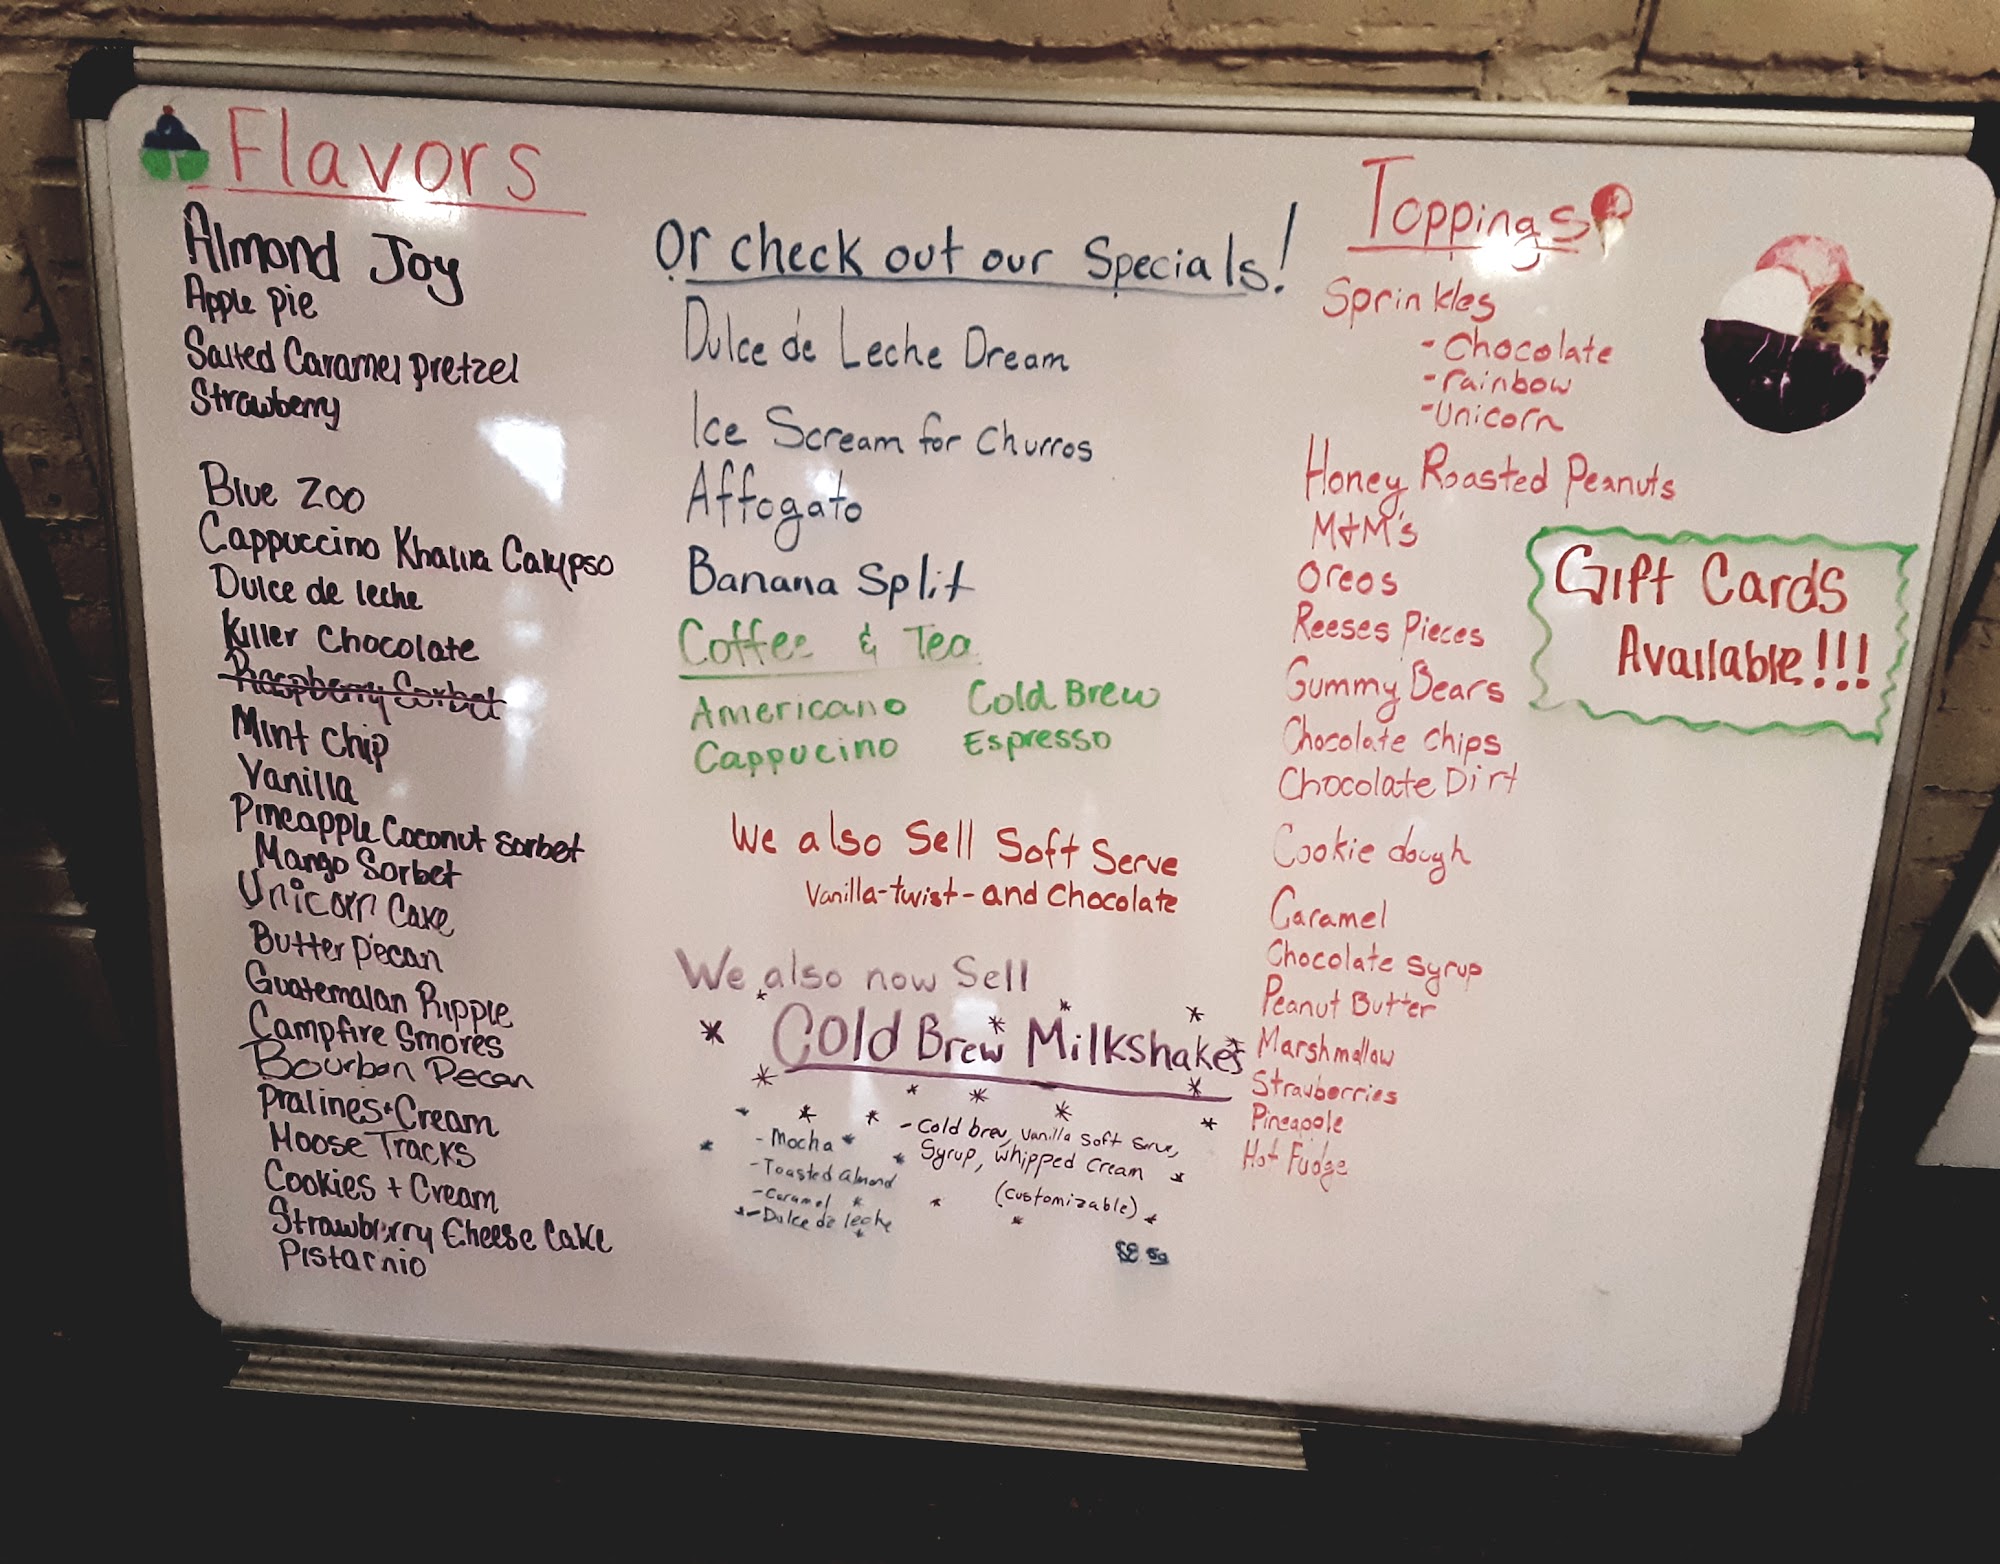 Flavors
Almond Joy
Apple pie
Salted Caramel pretzel
Strawberry
Blue Zoo
Cappuccino Khalua Calypso
Dulce de leche
Killer Chocolate
Raspberry Sorbet
Mint chip
Vanilla
Pineapple Coconut Sorbet
Mango Sorbet
Unicorn Cake
Butter Pecan
Guatemalan Ripple
Campfire Smores
Bourbon Pecan
Pralines + Cream
Moose Tracks
Cookies + Cream
Strawberry Cheese Cake
Pistachio
Or check out our Specials!
Dulce de Leche Dream
Ice Scream for Churros
Affogato
Banana Split
Coffee & Tea
Americano Cold Brew
Cappucino Espresso
We also Sell Soft Serve
Vanilla-twist-and Chocolate
We also now Sell
Cold Brew Milkshakes
- Mocha
- Toasted almond
- Caramel
- Dulce de leche
- Cold brew, vanilla soft serve,
Syrup, whipped cream
(customizable)
Toppings
Sprinkles
- Chocolate
- rainbow
- Unicorn
Honey Roasted Peanuts
M&M's
Oreos
Reeses Pieces
Gummy Bears
Chocolate Chips
Chocolate Dirt
Cookie dough
Caramel
Chocolate Syrup
Peanut Butter
Marshmallow
Strawberries
Pineapple
Hot Fudge
Gift Cards
Available!!!